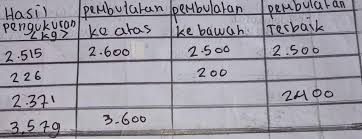 Hasil pembulatan pembulatan pembulatan
pengukuran ke atas ke bawah Terbaik
kg>
2.515 2.600 2.500 2.500
226 200
2.371 2400
3.579 3.600